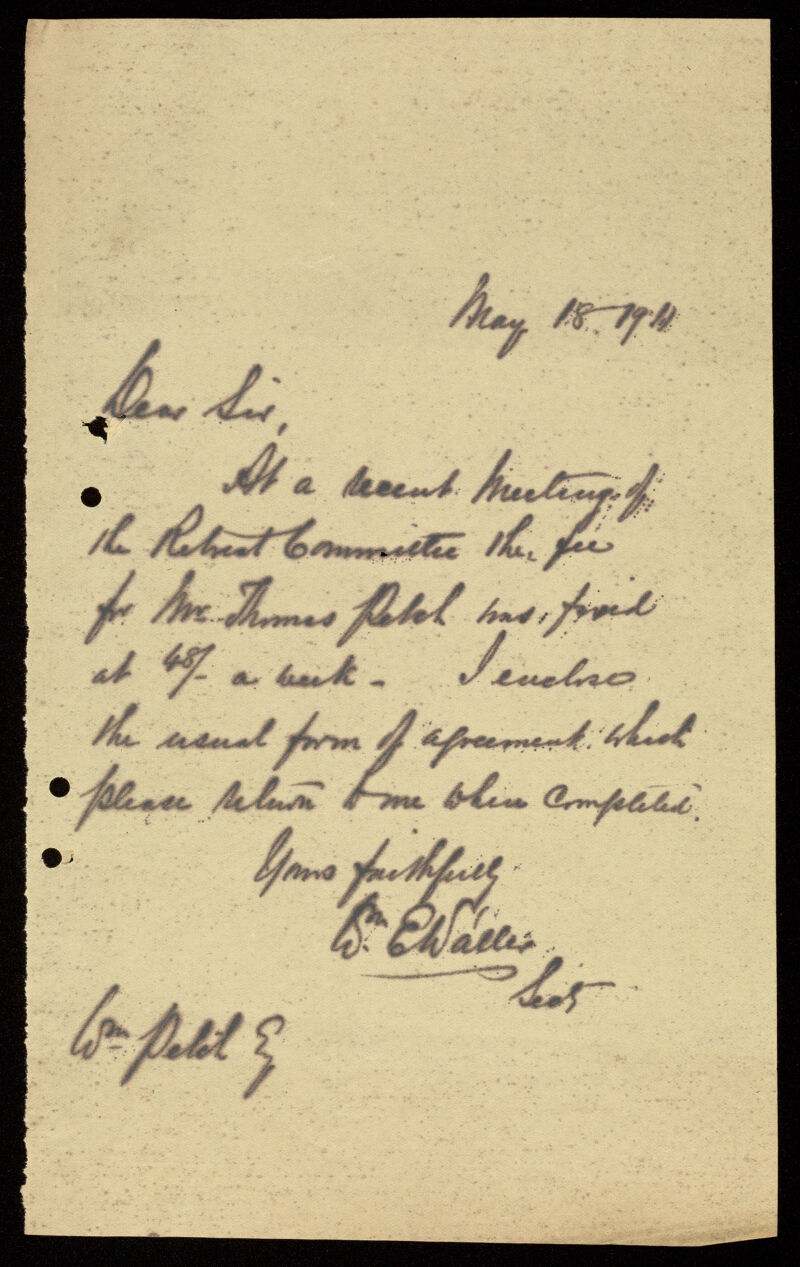 May 18 1911
Dear Sir,
At a recent Meeting of
the Retreat Committee the fee
for Mr Thomas Petch was fixed
at 48/- a week - I enclose
the usual form of agreement which
please return to me when completed.
Yours faithfully
Wm. E Waller
Secty
Wm Petch Eq